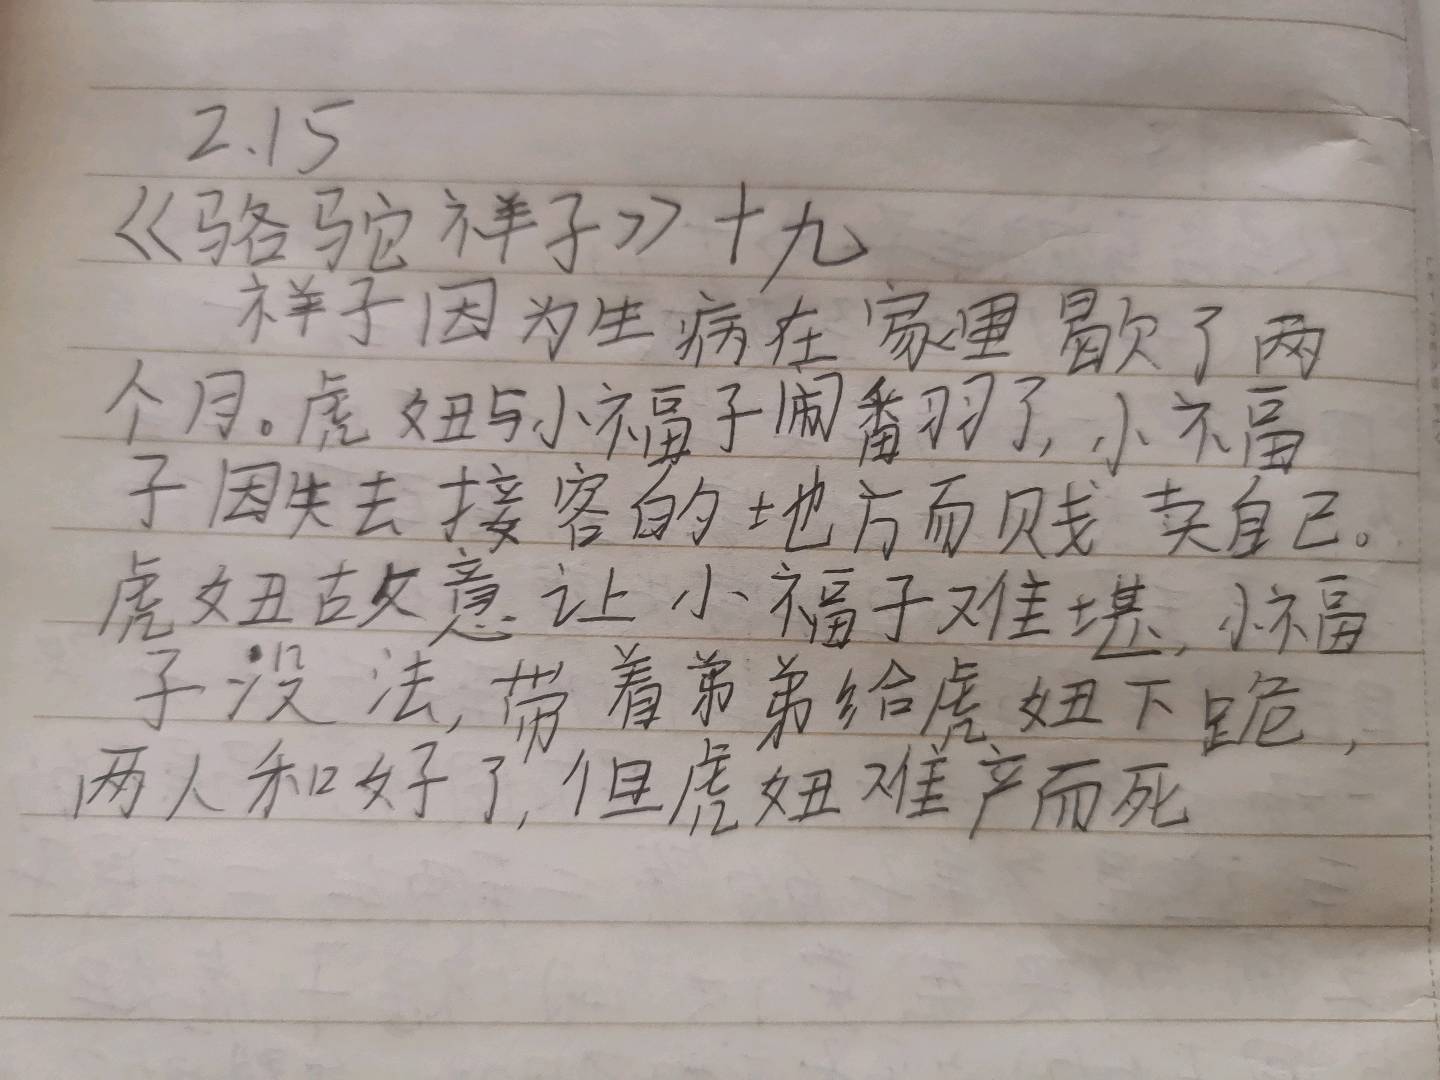 2.15
《骆驼祥子》十九
祥子因为生病在家里歇了两
个月。虎妞与小福子闹翻了,小福
子因失去接客的地方而贱卖自己。
虎妞故意让小福子难堪,小福
子没法,带着弟弟给虎妞下跪,
两人和好了,但虎妞难产而死